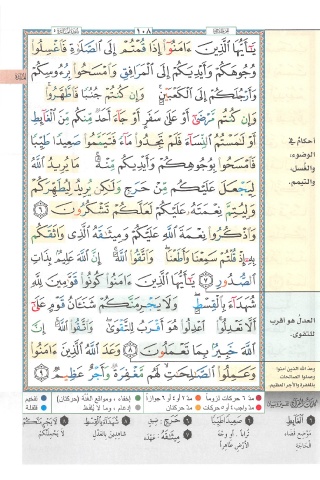 ١٠٨
يَٰٓأَيُّهَا ٱلَّذِينَ ءَامَنُوٓا۟ إِذَا قُمْتُمْ إِلَى ٱلصَّلَوٰةِ فَٱغْسِلُوا۟
وُجُوهَكُمْ وَأَيْدِيَكُمْ إِلَى ٱلْمَرَافِقِ وَٱمْسَحُوا۟ بِرُءُوسِكُمْ
وَأَرْجُلَكُمْ إِلَى ٱلْكَعْبَيْنِ ۚ وَإِن كُنتُمْ جُنُبًا فَٱطَّهَّرُوا۟ ۚ
وَإِن كُنتُم مَّرْضَىٰٓ أَوْ عَلَىٰ سَفَرٍ أَوْ جَآءَ أَحَدٌ مِّنكُم مِّنَ ٱلْغَآئِطِ
أَوْ لَٰمَسْتُمُ ٱلنِّسَآءَ فَلَمْ تَجِدُوا۟ مَآءً فَتَيَمَّمُوا۟ صَعِيدًا طَيِّبًا
فَٱمْسَحُوا۟ بِوُجُوهِكُمْ وَأَيْدِيكُم مِّنْهُ ۚ مَا يُرِيدُ ٱللَّهُ
لِيَجْعَلَ عَلَيْكُم مِّنْ حَرَجٍ وَلَٰكِن يُرِيدُ لِيُطَهِّرَكُمْ
وَلِيُتِمَّ نِعْمَتَهُۥ عَلَيْكُمْ لَعَلَّكُمْ تَشْكُرُونَ ٦
وَٱذْكُرُوا۟ نِعْمَةَ ٱللَّهِ عَلَيْكُمْ وَمِيثَٰقَهُ ٱلَّذِى وَاثَقَكُم
بِهِۦٓ إِذْ قُلْتُمْ سَمِعْنَا وَأَطَعْنَا ۖ وَٱتَّقُوا۟ ٱللَّهَ ۚ إِنَّ ٱللَّهَ عَلِيمٌۢ بِذَاتِ
ٱلصُّدُورِ ٧ يَٰٓأَيُّهَا ٱلَّذِينَ ءَامَنُوا۟ كُونُوا۟ قَوَّٰمِينَ لِلَّهِ
شُهَدَآءَ بِٱلْقِسْطِ ۖ وَلَا يَجْرِمَنَّكُمْ شَنَـَٔانُ قَوْمٍ عَلَىٰٓ
أَلَّا تَعْدِلُوا۟ ۚ ٱعْدِلُوا۟ هُوَ أَقْرَبُ لِلتَّقْوَىٰ ۖ وَٱتَّقُوا۟ ٱللَّهَ ۚ إِنَّ
ٱللَّهَ خَبِيرٌۢ بِمَا تَعْمَلُونَ ٨ وَعَدَ ٱللَّهُ ٱلَّذِينَ ءَامَنُوا۟
وَعَمِلُوا۟ ٱلصَّٰلِحَٰتِ ۙ لَهُم مَّغْفِرَةٌ وَأَجْرٌ عَظِيمٌ ٩
أحكام في
الوضوء،
والغُسل،
والتيمم.
العدل هو أقرب
للتقوى.
وعد الله الذين آمنوا
وعملوا الصالحات
بالمغفرة والأجر العظيم.
مدّ ٦ حركات لزوماً مدّ ٢ أو ٤ أو ٦ جوازاً إخفاء، ومواقع الغُنَّة (حركتان) تفخيم
مدّ واجب ٤ أو ٥ حركات مدّ حركتان إدغام، وما لا يُلفظ قلقلة
ٱلْغَآئِطِ
مَوْضِعِ قَضَاء
الْحَاجَة
صَعِيدًا طَيِّبًا
تُرَاباً، أو وَجْهَ
الأَرْضِ طَاهِراً
حَرَجٍ: ضِيقٍ
مِيثَٰقَهُ: عَهْدَه
شُهَدَآءَ بِٱلْقِسْطِ
شَاهِدِينَ بِالعَدْلِ
لَا يَجْرِمَنَّكُمْ
لا يَحْمِلَنَّكُمْ